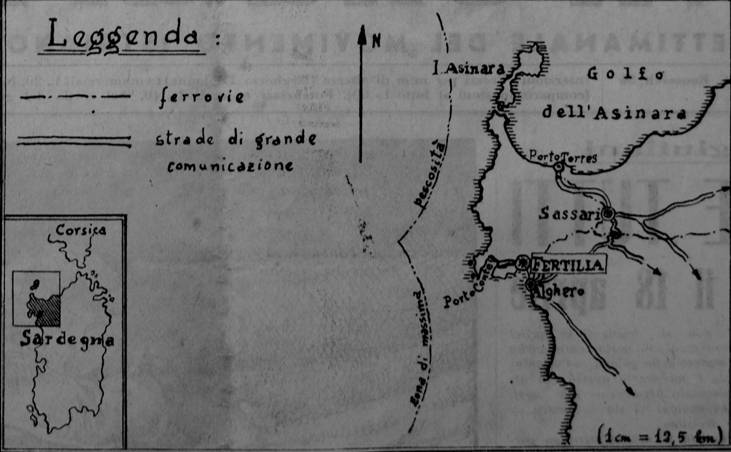 Leggenda:
ferrovie
strade di grande
comunicazione
N
I. Asinara
Golfo
dell'Asinara
Porto Torres
Sassari
FERTILIA
Porto Conte
Alghero
zona di massima pescosità
Corsica
Sardegna
(1 cm = 12,5 km)
ETTIMANALE DEL MOVIMEN